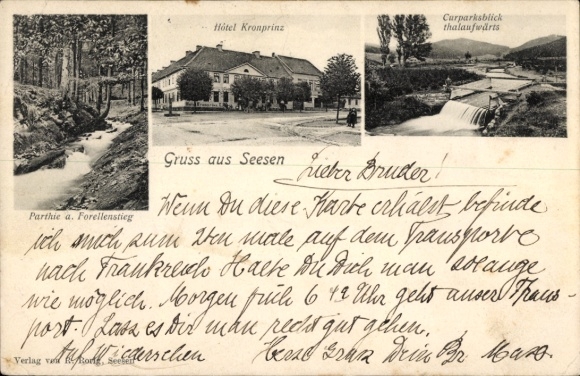 Hôtel Kronprinz
Curparksblick
thalaufwärts
Gruss aus Seesen
Parthie a. Forellenstieg
Lieber Bruder!
Wenn Du diese Karte erhälst befinde
ich mich zum 2ten male auf dem Transporte
nach Frankreich Halte Du Dich man solange
wie möglich. Morgen früh 6 42 Uhr geht unser Trans-
port. Lass es Dir man recht gut gehen.
Auf Wiedersehen Herzl Gruss Dein Br. Max
Verlag von R. Rorig, Seesen